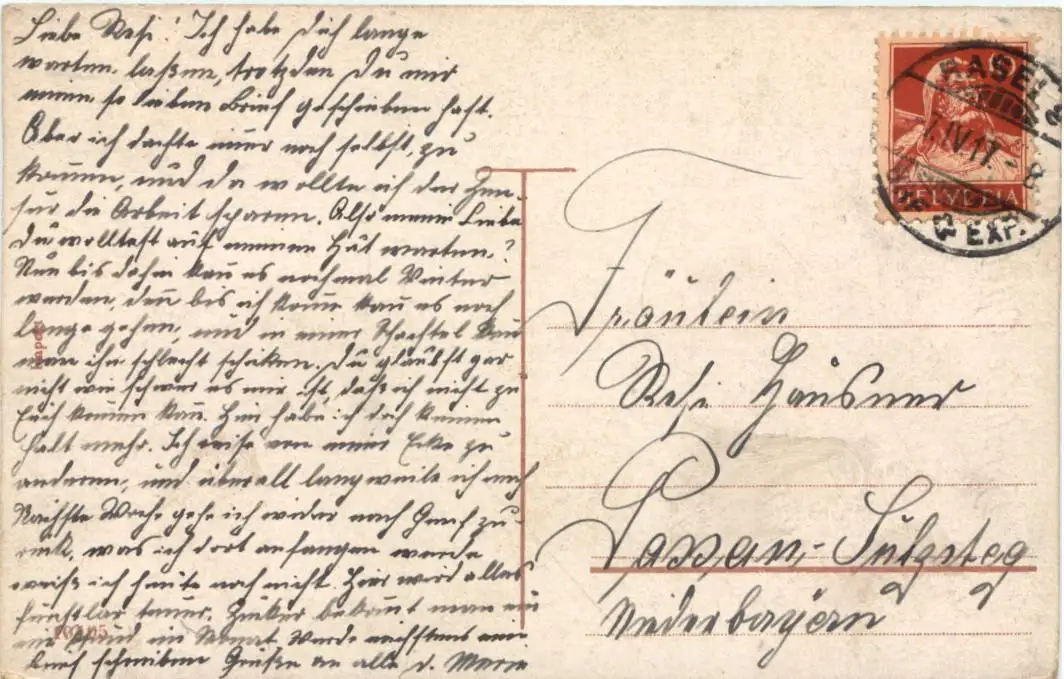 Liebe Resi! Ich habe Dich lange
warten laßen, trotzdem Du mir
einen so lieben Brief geschrieben hast.
Aber ich dachte immer noch selbst zu
kommen, und da wollte ich der Zen-
sur die Arbeit sparen. Also meine Liebe
Du wolltest auf meinen Hut warten?
Nun bis dahin kann es nochmal Winter
werden, denn bis ich komme kann es noch
lange gehen, und in einer Schachtel kann
man ihn schlecht schicken. Du glaubst gar
nicht wie schwer es mir ist, daß ich nicht zu
Euch kommen kann. Hier habe ich doch keinen
Halt mehr. Ich reise von einer Ecke zu
anderen, und überall langweile ich mich
Nächste Woche gehe ich wieder nach Genf zu-
rück, was ich dort anfangen werde
weiß ich heute noch nicht. Hier wird alles
furchtbar teuer. Zucker bekommt man nur
ein Pfund im Monat. Werde nächstens einen
Brief schreiben Grüße an alle d. Marie
Fräulein
Resi Hausner
Passau-Sulzsteg
Niederbayern
10
HELVETIA
BASEL
7.IV.17.-8
EXP.